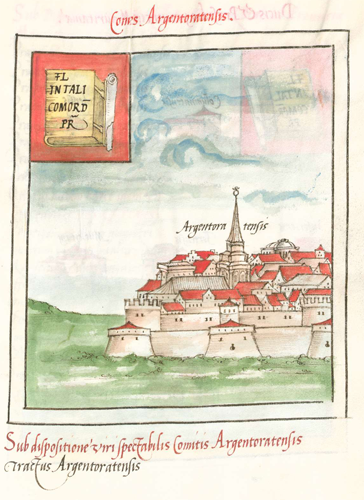 Comes Argentoratensis.
FL
INTALI
COMORD
PR
Argentoratensis
Sub dispositione viri spectabilis Comitis Argentoratensis
Tractus Argentoratensis